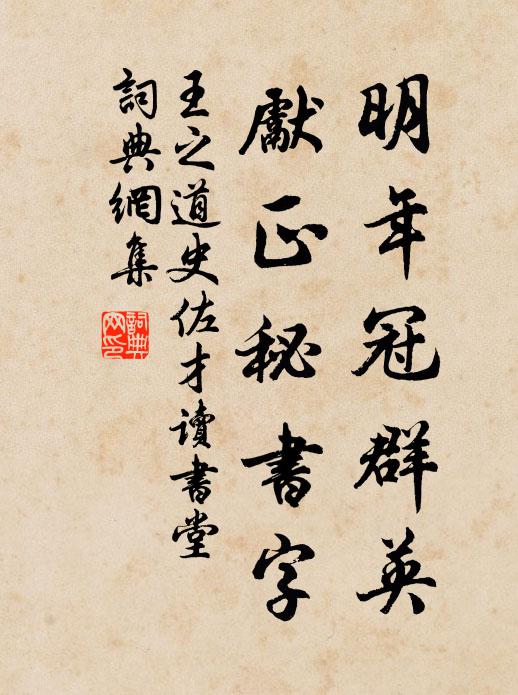 明年冠群英
獻正秘書字
王之道史佐才讀書堂
詞典網集
詞典網印